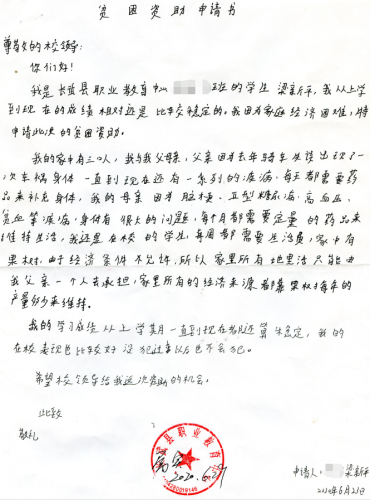 贫困资助申请书
尊敬的校领导:
你们好!
我是长武县职业教育中心 班的学生 梁新平,我从上学
到现在的成绩相对还是比较稳定的。我因为家庭经济困难,特
申请此次的贫困资助。
我的家中有三口人,我与我父母亲,父亲因去年骑车发生出现了一
次车祸身体一直到现在还有一系列的疾病,每天都需要药
品来补充身体,我的母亲因有脑梗、Ⅱ型糖尿病,高血压,
贫血等疾病,身体有很大的问题,每个月都需要定量的药品来
维持生活,我还是在校的学生,每周都需要生活费,家中有
果树,由于经济条件不允许,所以家里所有地里活只能由
我父亲一个人去承担,家里所有的经济来源都靠果树每年的
产量多少来维持。
我的学习成绩从上学期一直到现在都还算稳定,我的
在校表现也比较好没犯过事以后也不会犯。
希望校领导给我这次资助的机会。
此致
敬礼
县职业教育
2020.6.21
申请人: 梁新平
2020年6月21日